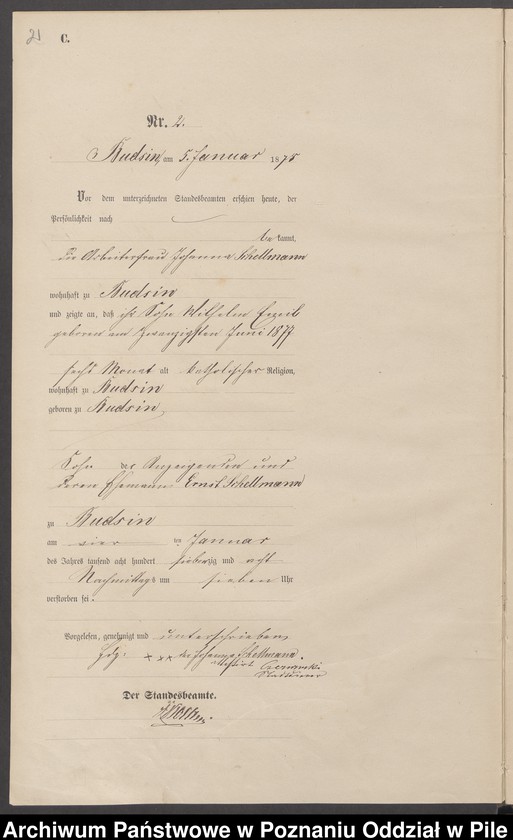 21 C.
Nr. 2.
Budsin, am 5. Januar 1878
Vor dem unterzeichneten Standesbeamten erschien heute, der
Persönlichkeit nach
be kannt,
die Arbeiterfrau Johanna Schellmann
wohnhaft zu Budsin
und zeigte an, daß ihr Sohn Wilhelm
geboren am zwanzigsten Juni 1877
sechs Monat alt katholischer Religion,
wohnhaft zu Budsin
geboren zu Budsin,
Sohn der Anzeigenden und
deren Ehemann Ernst Schellmann
zu Budsin
am vier ten Januar
des Jahres tausend acht hundert siebenzig und acht
Nachmittags um sieben Uhr
verstorben sei.
Vorgelesen, genehmigt und unterschrieben
Hdz. +++ der Johanna Schellmann.
attestirt
Der Standesbeamte.
Archiwum Państwowe w Poznaniu Oddział w Pile